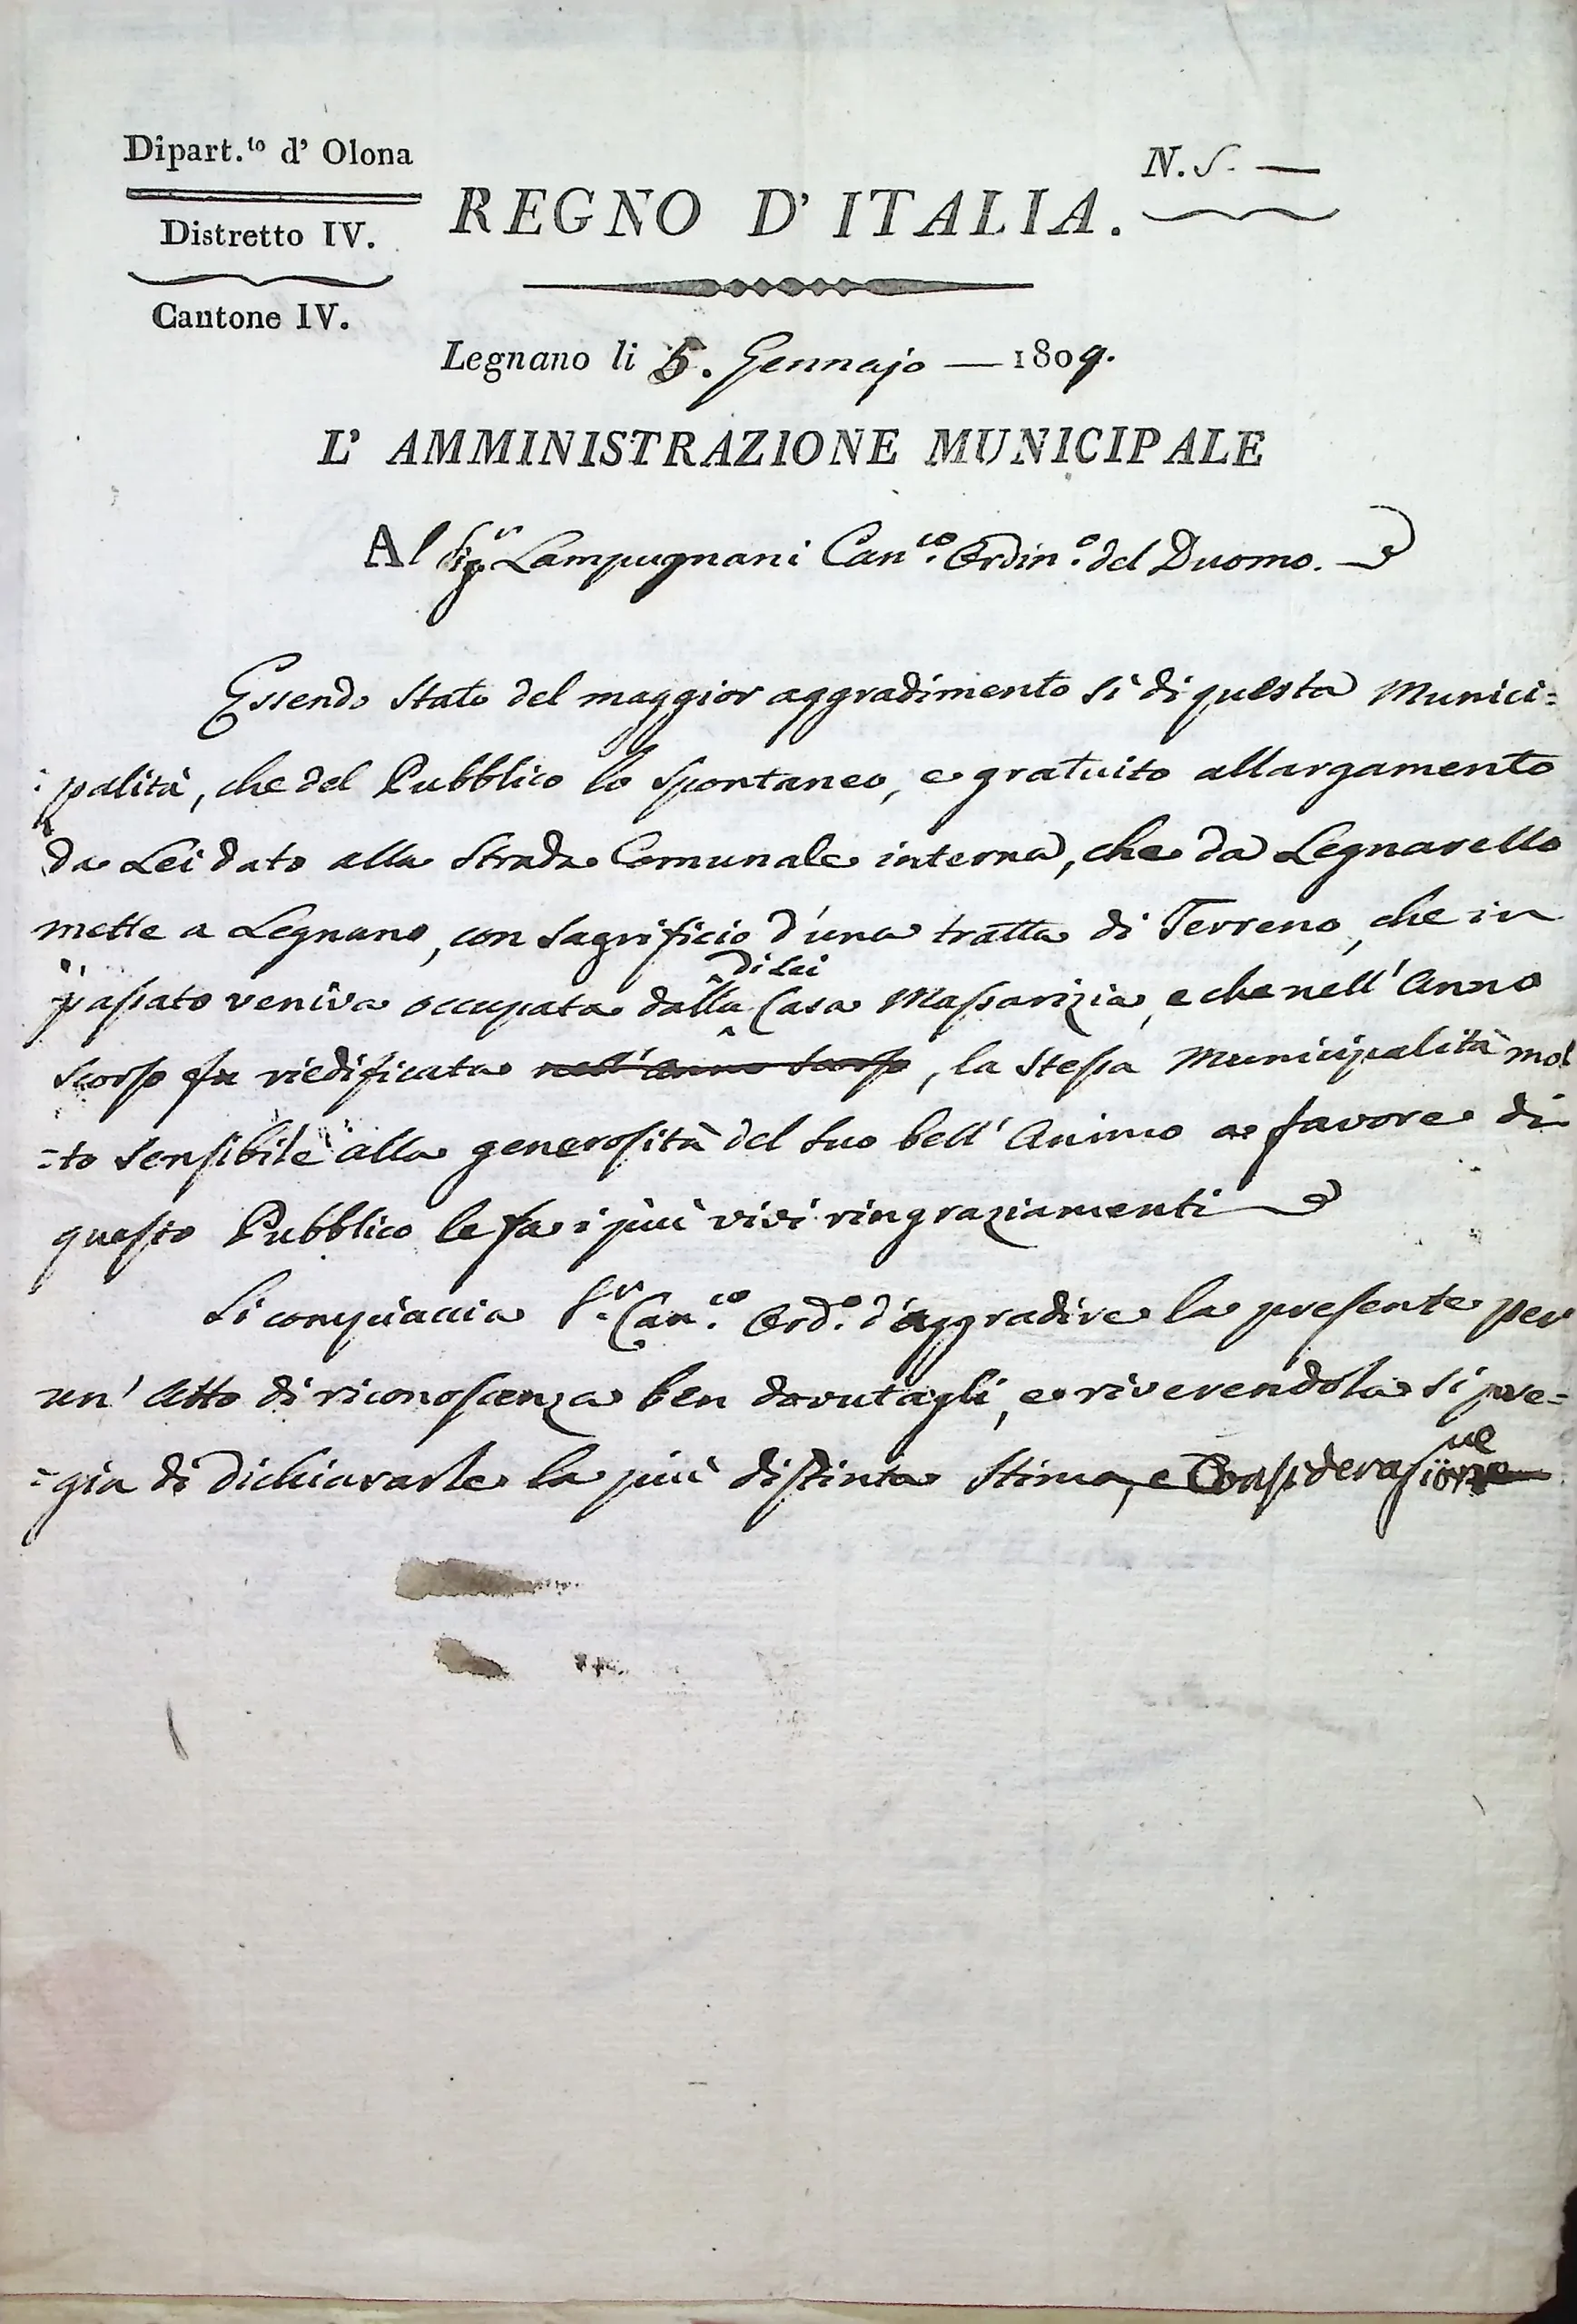 Dipart.to d' Olona
N. 5. —
REGNO D' ITALIA.
Distretto IV.
Cantone IV.
Legnano li 5. Gennajo — 1809.
L' AMMINISTRAZIONE MUNICIPALE
Al Sigr Lampugnani Canco. Ordino. del Duomo.
Essendo stato del maggior aggradimento sì di questa Munici=
=palità, che del Pubblico lo spontaneo, e gratuito allargamento
da Lei dato alla Strada Comunale interna, che da Legnarello
mette a Legnano, con sagrificio d'una tratta di Terreno, che in
di Lei
passato veniva occupata dalla Casa Massarizia, e che nell' Anno
scorso fu riedificata nell' Anno scorso, la stessa Municipalità mol
=to sensibile alla generosità del suo bell' Animo a favore di
questo Pubblico le fa i più vivi ringraziamenti
Si compiaccia Sr. Canco. Ordo. d'aggradire la presente per
un' Atto di riconoscenza ben dovutagli, e riverendola si pre=
=gia di dichiararle la più distinta stima, e Considerasione
ne